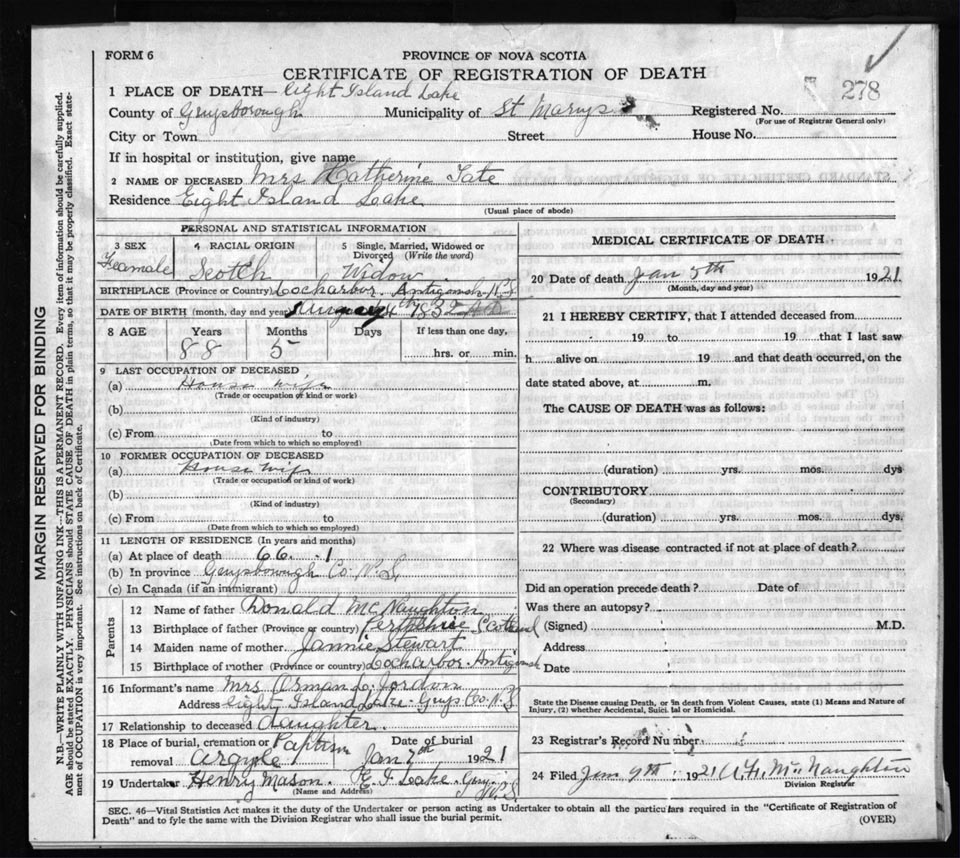 FORM 6
PROVINCE OF NOVA SCOTIA
CERTIFICATE OF REGISTRATION OF DEATH
278
1 PLACE OF DEATH— Eight Island Lake
County of Guysborough Municipality of St Marys Registered No.
(For use of Registrar General only)
City or Town Street House No.
If in hospital or institution, give name
2 NAME OF DECEASED Mrs Katherine Tate
Residence Eight Island Lake
(Usual place of abode)
PERSONAL AND STATISTICAL INFORMATION
3 SEX 4 RACIAL ORIGIN 5 Single, Married, Widowed or Divorced (Write the word)
Feamale Scotch Widow
BIRTHPLACE (Province or Country) Locharbor. Antigonsh N.S
DATE OF BIRTH (month, day and year) 4th 1832 A D
8 AGE Years Months Days If less than one day,
88 5 hrs. or min.
9 LAST OCCUPATION OF DECEASED
(a) House wife
(Trade or occupation or kind or work)
(b)
(Kind of industry)
(c) From to
(Date from which to which so employed)
10 FORMER OCCUPATION OF DECEASED
(a) House wife
(Trade or occupation or kind or work)
(b)
(Kind of industry)
(c) From to
(Date from which to which so employed)
11 LENGTH OF RESIDENCE (In years and months)
(a) At place of death 66 - 1
(b) In province Guysborough Co N.S,
(c) In Canada (if an immigrant)
Parents
12 Name of father Donald McNaughton
13 Birthplace of father (Province or country) Perthshire Scotland
14 Maiden name of mother Jannie Stewart
15 Birthplace of mother (Province or country) Locharbor. Antigonsh
16 Informant's name Mrs Orman L. Jordon
Address Eight Island Lake Guys Co N.S
17 Relationship to deceased daughter
18 Place of burial, cremation or removal Argyle Date of burial Jan 7th 1921
19 Undertaker Henry Mason. E. I Lake Guys N.S.
(Name and Address)
MEDICAL CERTIFICATE OF DEATH
20 Date of death Jan 5th 1921
(Month, day and year)
21 I HEREBY CERTIFY, that I attended deceased from
19 to 19 that I last saw
h alive on 19 and that death occurred, on the
date stated above, at m.
The CAUSE OF DEATH was as follows:
(duration) yrs. mos. dys
CONTRIBUTORY
(Secondary)
(duration) yrs. mos. dys.
22 Where was disease contracted if not at place of death?
Did an operation precede death? Date of
Was there an autopsy?
(Signed) M.D.
Address
Date
State the Disease causing Death, or in death from Violent Causes, state (1) Means and Nature of
Injury, (2) whether Accidental, Suicidal or Homicidal.
23 Registrar's Record Number
24 Filed Jan 9th 1921 A. H. McNaughton
Division Registrar
SEC. 46—Vital Statistics Act makes it the duty of the Undertaker or person acting as Undertaker to obtain all the particulars required in the "Certificate of Registration of
Death" and to fyle the same with the Division Registrar who shall issue the burial permit.
(OVER)
MARGIN RESERVED FOR BINDING
N.B.—WRITE PLAINLY WITH UNFADING INK—THIS IS A PERMANENT RECORD. Every item of information should be carefully supplied.
AGE should be stated EXACTLY. PHYSICIANS should STATE CAUSE OF DEATH in plain terms, so that it may be properly classified. Exact state-
ment of OCCUPATION is very important. See instructions on back of Certificate.